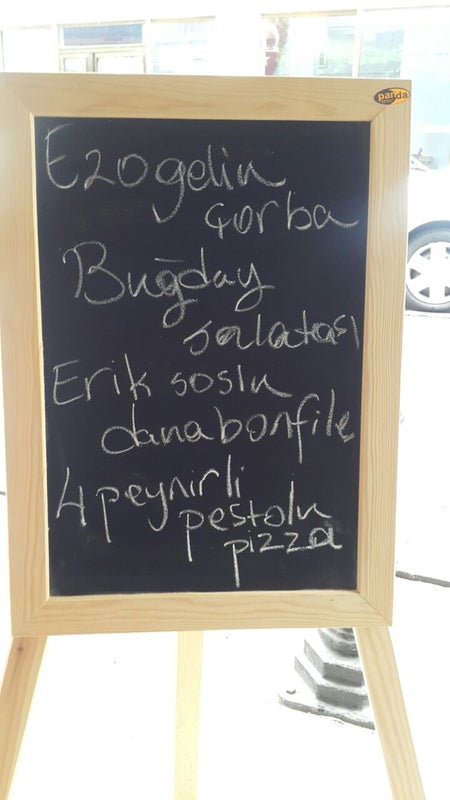 Ezogelin
çorba
Buğday
salatası
Erik soslu
dana bonfile
4 peynirli
pestolu
pizza
panda